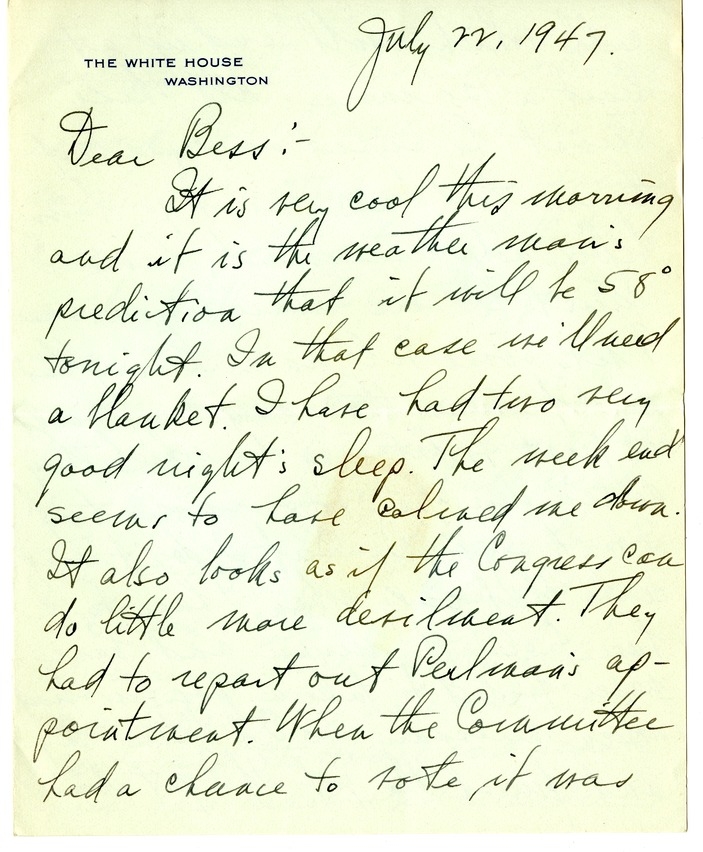 July 22, 1947.
THE WHITE HOUSE
WASHINGTON
Dear Bess:-
It is very cool this morning
and it is the weather man's
prediction that it will be 58°
tonight. In that case we'll need
a blanket. I have had two very
good night's sleep. The week end
seems to have calmed me down.
It also looks as if the Congress can
do little more devilment. They
had to report out Perlman's ap-
pointment. When the Committee
had a chance to vote it was